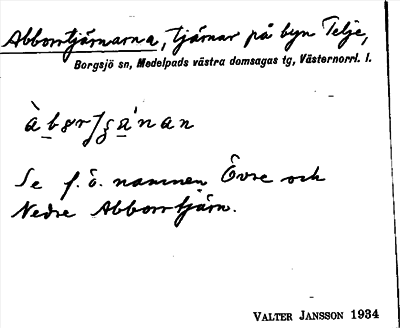 Abborrtjärnarna, tjärnar på byn Telje,
Borgsjö sn, Medelpads västra domsagas tg, Västernorrl. l.
Se f. ö. namnen Övre och
Nedre Abborrtjärn.
VALTER JANSSON 1934